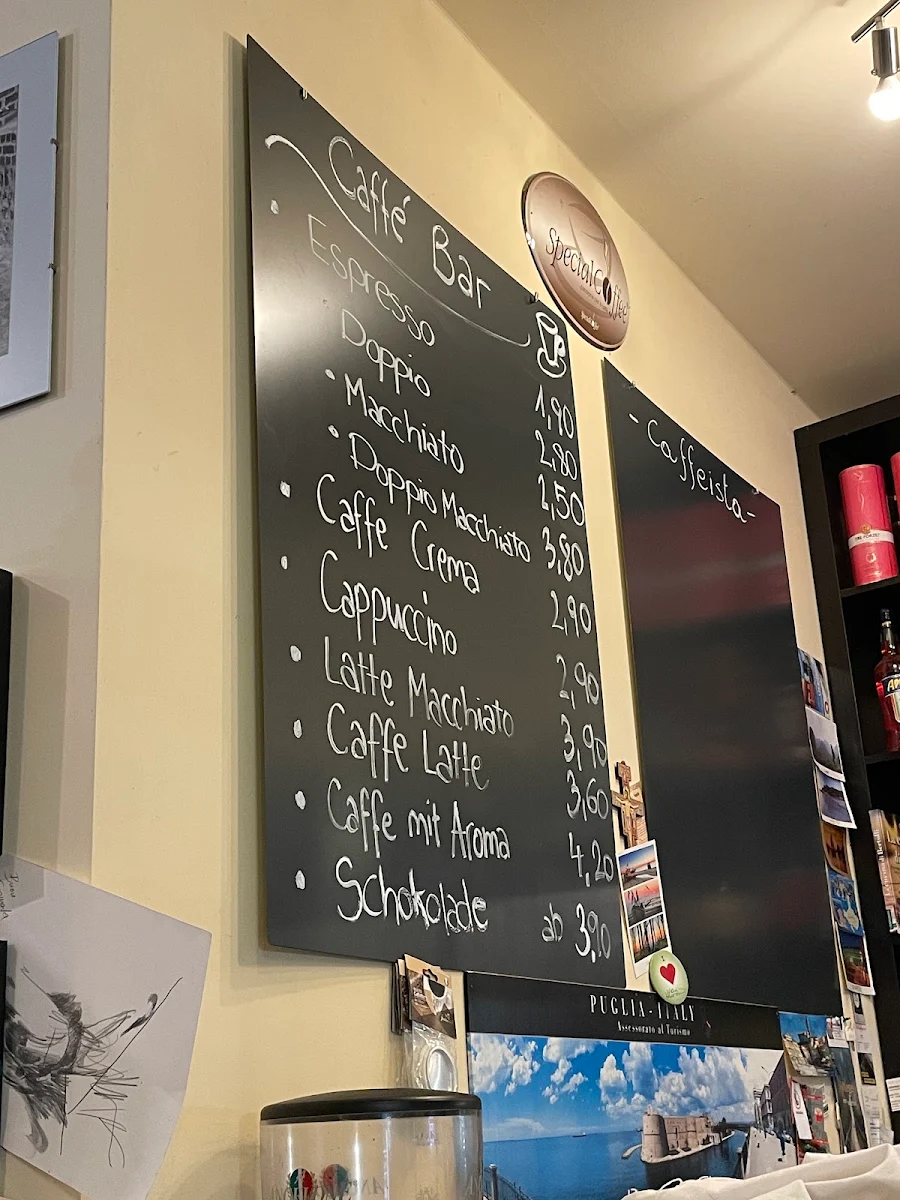 Caffé Bar
Espresso 1,90
Doppio 2,80
• Macchiato 2,50
• Doppio Macchiato 3,80
Caffe Crema 2,90
Cappuccino 2,90
Latte Macchiato 3,90
Caffe Latte 3,60
Caffe mit Aroma 4,20
Schokolade ab 3,90
SpecialCoffee
- Caffeista -
PUGLIA - ITALY
Assessorato al Turismo